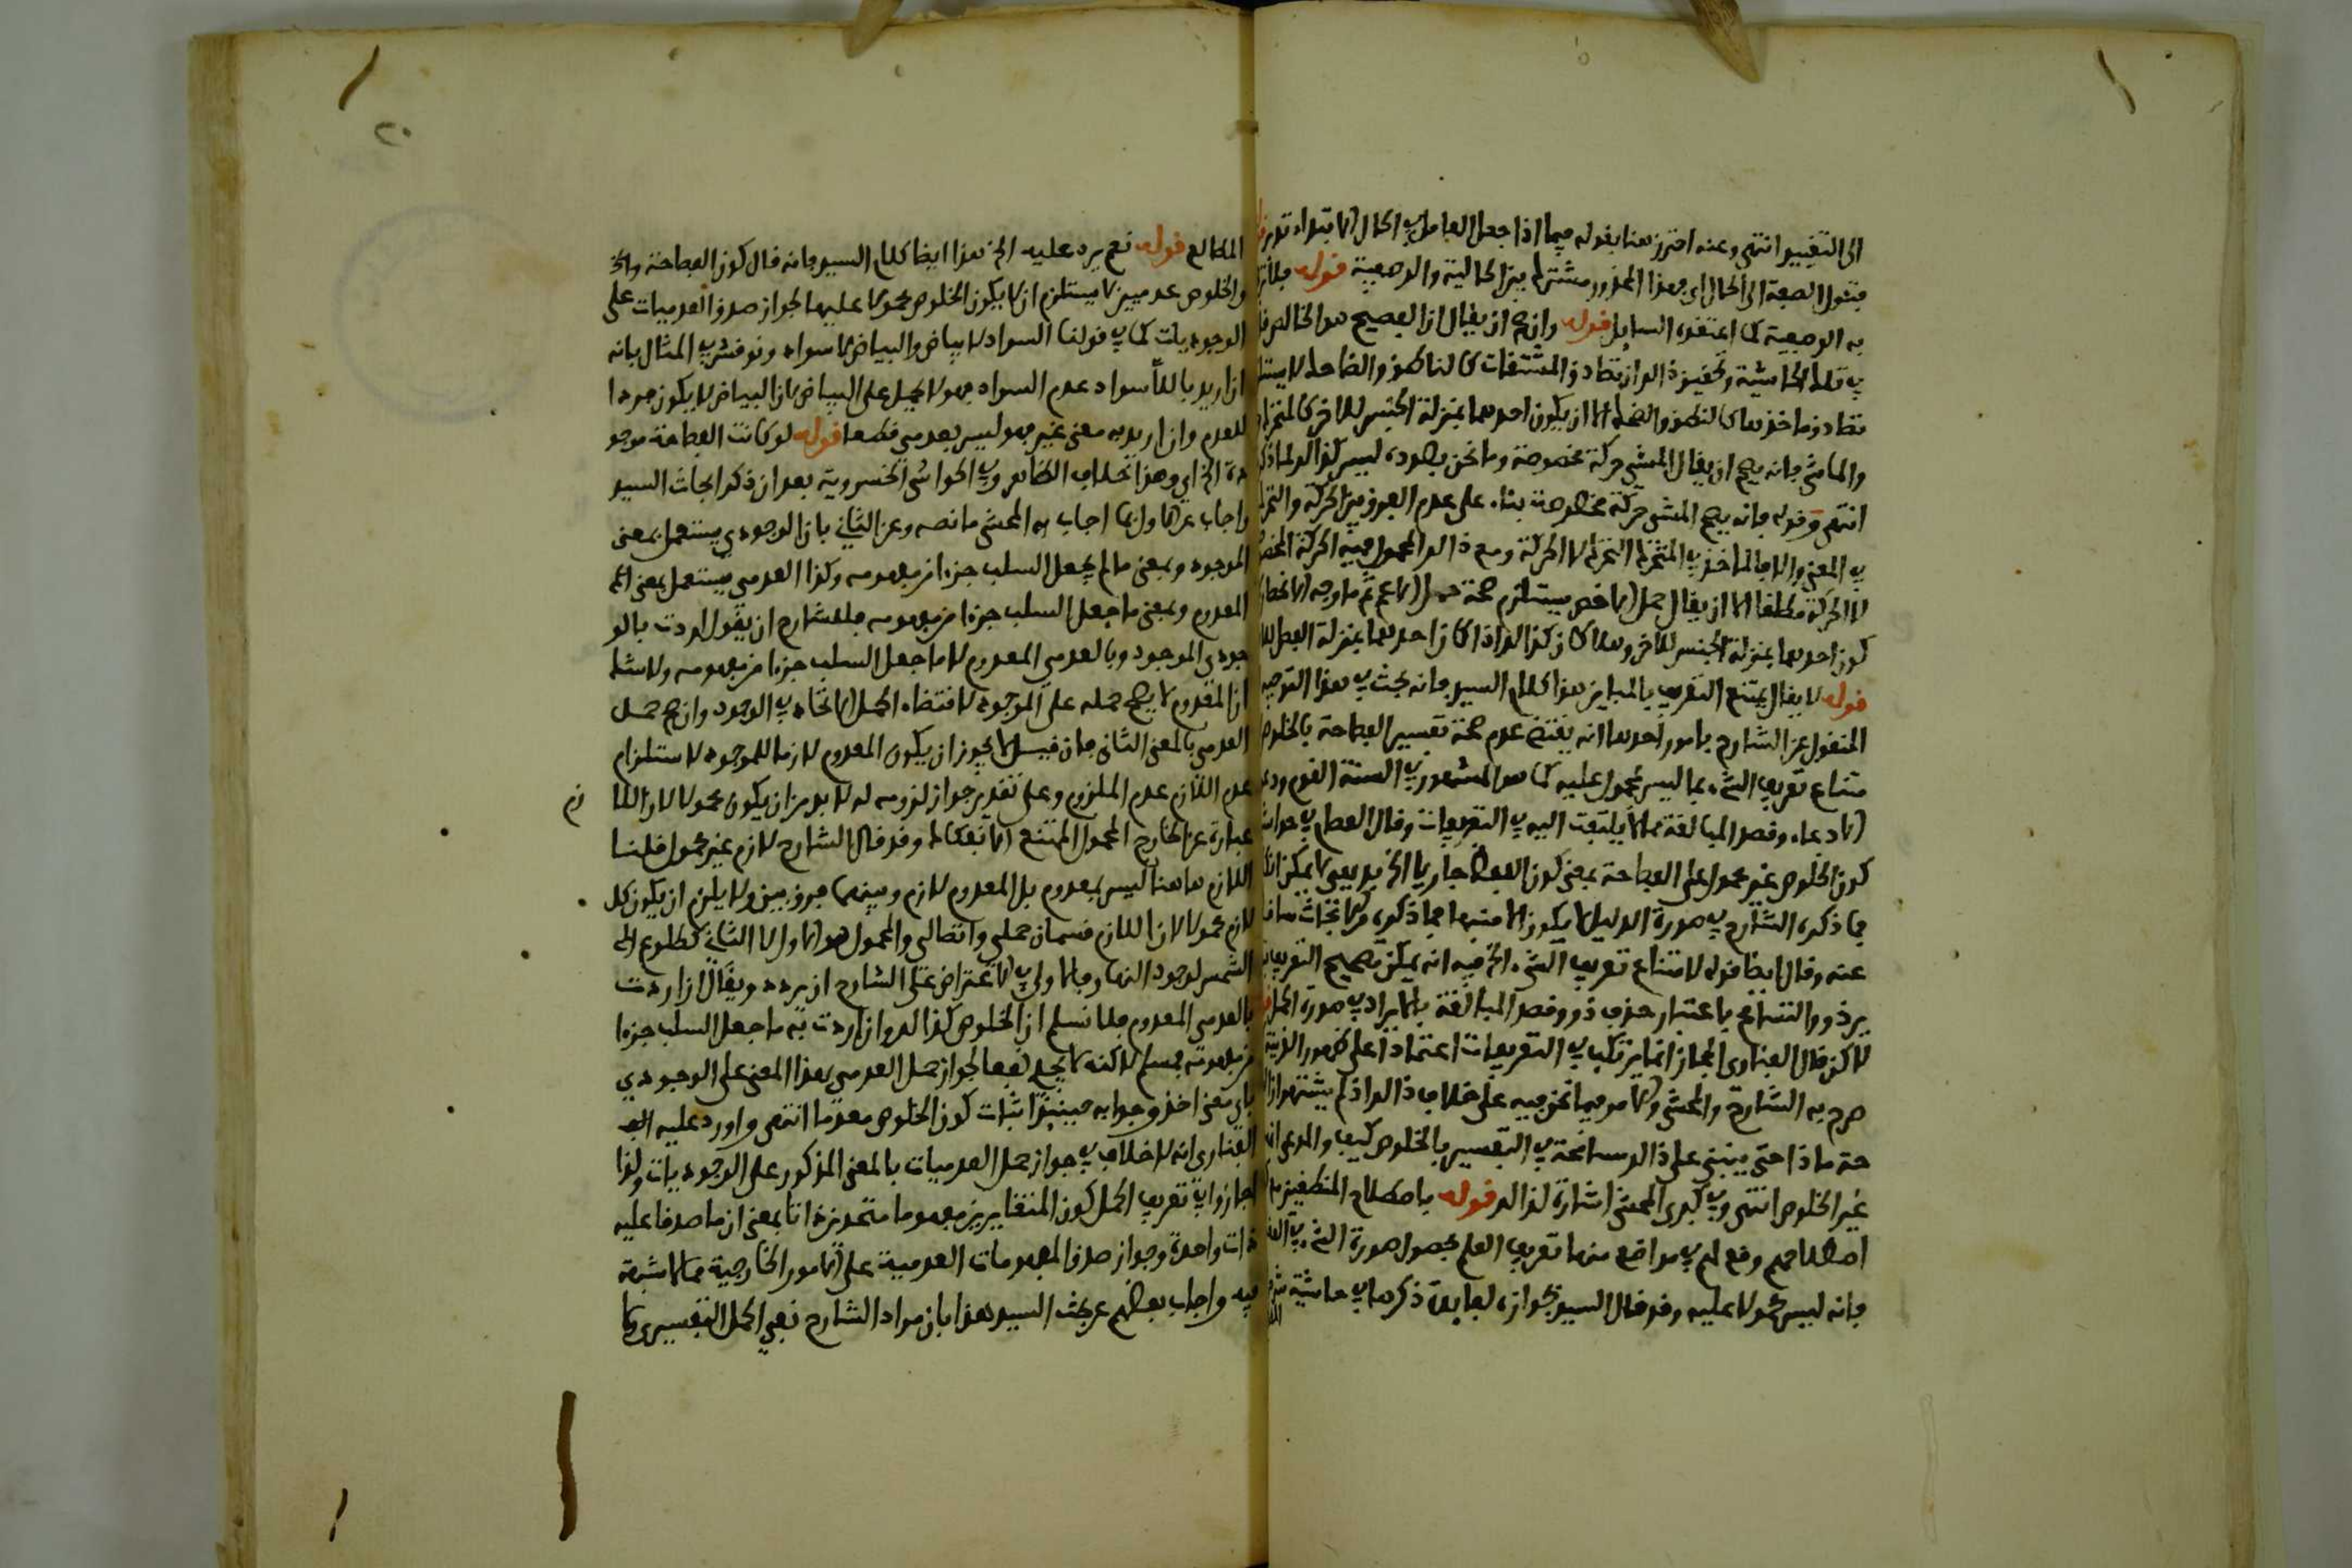 الى التقييد انتهى وعنه احترز هنا بقوله فيما اذا جعل العامل في الحال
فتؤول الصفة الى الحال اي فهذا المحذور مشترك بين الحالية والوصفية قوله
به الوصفية كما اعتقده السايل قوله وان صح ان يقال ان الفصيح هو الخالص
في تلك الحاشية وتحقيق ذالك ان تصادق المشتقات كالناطق والضاحك لا يستلزم
تصادق ماخذها كالنطق والضحك الا ان يكون احدهما بمنزلة الجنس للاخر كالمتحرك
والماشي فانه يصح ان يقال المشي حركة مخصوصة وما نحن بصدده ليس كذالك لما ذكر
انتهى وقوله فانه يصح المشي حركة مخصوصة بناء على عدم الفرق بين الحركة والتحرك
في المعنى والا فالماخذ في المتحرك التحرك لا الحركة ومع ذالك المحمول فيه الحركة
لا الحركة مطلقا الا ان يقال حمل الاخص يستلزم صحة حمل الاعم ثم ما وجه
كون احدهما بمنزلة الجنس للاخر وهلا كان كذالك اذا كان احدهما بمنزلة الفصل
قوله لا يقال يمتنع التعريف بالمباين هذا كلام السيد فانه بحث في هذا التوجيه
المنقول عن الشارح بامور احدها انه يقتضي عدم صحة تفسير الفصاحة بالخلوص
متناع تعريف الشيء بما ليس بمحمول عليه كما هو المشهور في السنة القوم
الادعاء وقصد المبالغة مما لا يلتفت اليه في التعريفات وقال
كون الخلوص غير محمول على الفصاحة بمعنى كون اللفظ جاريا الخ بديهي لا يمكن
فما ذكره الشارح في صورة الدليل لا يكون الا منبها فيما ذكره
عنه وقال ايضا قوله لامتناع تعريف الشيء الخ فيه انه يمكن تصحيح التعريف
بر ذو والتسامح باعتبار حذف ذو وقصد المبالغة بالايراد في صورة الحمل
لاكن قال الفناري المجاز انما يرتكب في التعريفات اعتمادا على ظهور القرينة
صرح به الشارح والمحشي والامر فيما نحن فيه على خلاف ذالك اذ لم يشتهر
حة ماذا حتى ينبني على ذالك مسامحة في التفسير بالخلوص كيف والمدعى
غير الخلوص انتهى وفي كبرى المحشي اشارة لذالك قوله باصطلاح المنطقيين
اصطلاحهم وقع لهم في مواضع منها تعريف العلم بحصول صورة الشيء في
فانه ليس محمولا عليه وقد قال السيد بجوازه لفايدة ذكرها في حاشية
٢٠
المطالع قوله نعم يرد عليه الخ هذا ايضا كلام السيد فانه قال كون الفصاحة
والخلوص عدميين لا يستلزم ان لا يكون الخلوص محمولا عليها لجواز صدق العدميات على
الوجوديات كما في قولنا السواد لا بياض والبياض لا سواد ونوقش في المثال بانه
ان اريد باللاسواد عدم السواد فهو لا يحمل على البياض لان البياض لا يكون فردا
للعدم وان اريد به معنى غير فهو ليس بعدمي قطعا قوله لو كانت الفصاحة موجو
دة الخ اي وهذا بخلاف الظاهر وفي الحواشي الخسروية بعد ان ذكر ابحاث السيد
واجاب عن اولها اجاب به المحشي ما نصه وعن الثاني بان الوجودي يستعمل بمعنى
الموجود وبمعنى ما لم يجعل السلب جزءا من مفهومه وكذا العدمي يستعمل بمعنى
المعدوم وبمعنى ما جعل السلب جزءا من مفهومه فللشارح ان يقول اردت بالو
جودي الموجود وبالعدمي المعدوم لا ما جعل السلب جزءا من مفهومه ولا شك
ان المعدوم لا يصح حمله على الموجود لاقتضاء الحمل الاتحاد في الوجود وان صح حمل
العدمي بالمعنى الثاني فان قيل لا يجوز ان يكون المعدوم لازما للموجود لاستلزام
عدم اللازم عدم الملزوم وعلى تقدير جواز لزومه له لا بد من ان يكون محمولا لان اللا زم
عبارة عن الخارج المحمول الممتنع الانفكاك وقد قال الشارح لازم غير محمول قلنا
اللازم هاهنا ليس بعدوم بل المعدوم لازم وبينهما فرق بين ولا يلزم ان يكون كل
لازم محمولا لان اللازم قسمان حملي واتصالي والمحمول هو الاول لا الثاني كطلوع
الشمس لوجود النهار فالاولى في الاعتراض على الشارح ان يردد ويقال ان اردت
بالعدمي المعدوم فلا نسلم ان الخلوص كذالك وان اردت به ما جعل السلب جزءا
من مفهومه فمسلم لاكنه لا يجدي نفعا لجواز حمل العدمي بهذا المعنى على الوجودي
باي معنى اخذ وجوابه حينيذ اثبات كون الخلوص معدوما انتهى واورد عليه
الفناري انه لا خلاف في جواز حمل العدميات بالمعنى المذكور على الوجوديات ولذا
اجازوا في تعريف الحمل كون المتغايرين مفهوما متحدين ذاتا بمعنى ان ما صدقا عليه
ذات واحدة وجواز صدق المفهومات العدمية على الامور الخارجية مما لا شبهة
فيه واجاب بعضهم عن بحث السيد هذا بان مراد الشارح نفي الحمل التفسيري